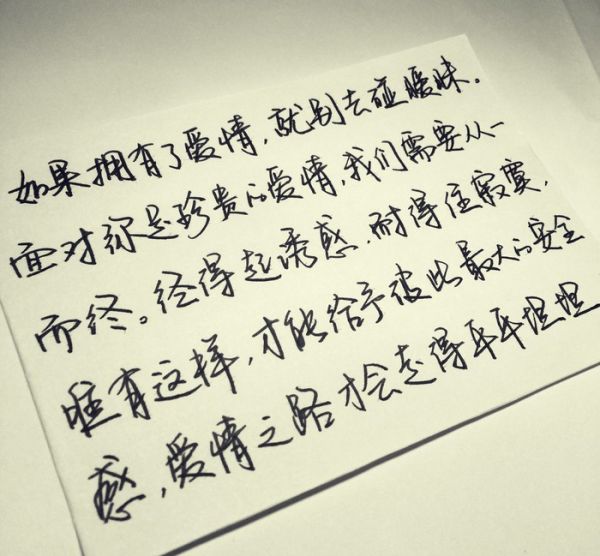 如果拥有了爱情,就别去碰暧昧。
面对弥足珍贵的爱情,我们需要从一
而终。经得起诱惑,耐得住寂寞,
唯有这样,才能给予彼此最大的安全
感,爱情之路才会走得平平坦坦